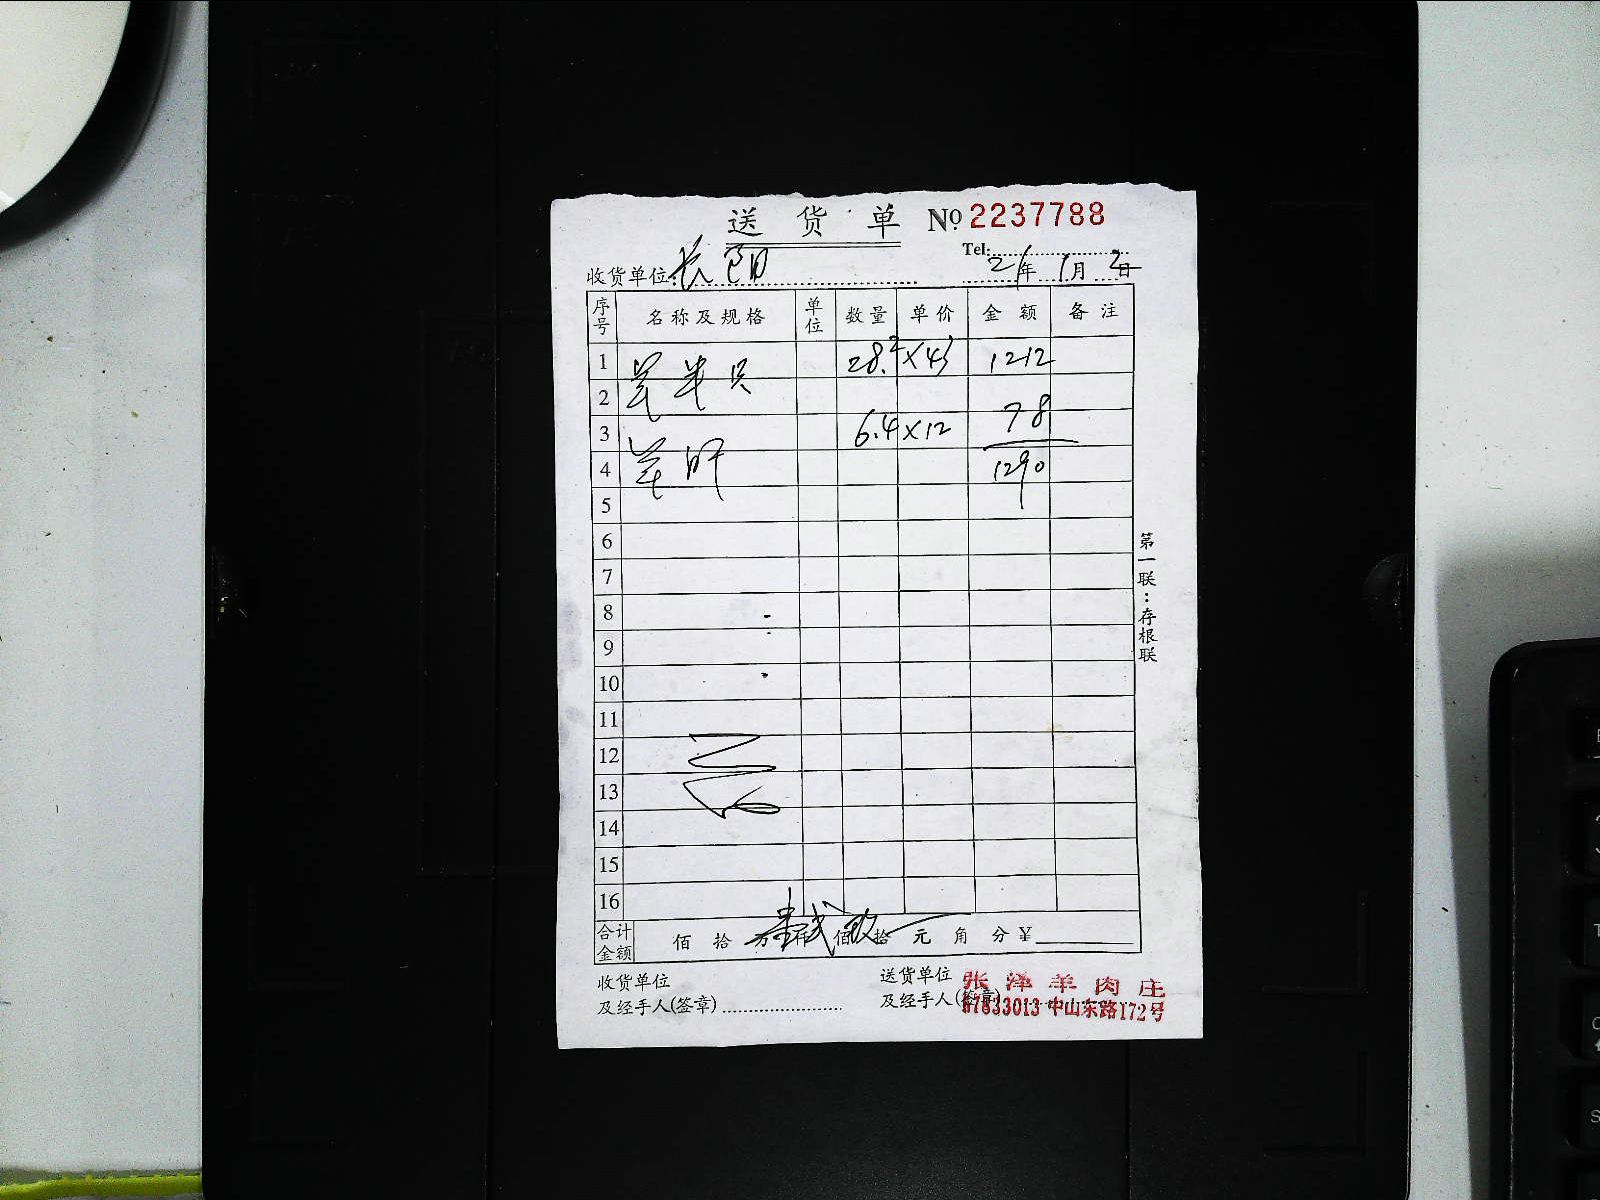 送货单 No 2237788
Tel:
收货单位 长阳 21年1月2日
序号 名称及规格 单位 数量 单价 金额 备注
1 羊半只 28.2 X 43 1212
2
3 羊肝 6.4 X 12 78
4 1290
5
6
7
8
9
10
11
12
13
14
15
16
合计金额 佰 拾 万 仟 佰 拾 元 角 分 ¥
收货单位 送货单位 张泽羊肉庄
及经手人(签章) 及经手人(签章) 67833013 中山东路172号
第一联:存根联